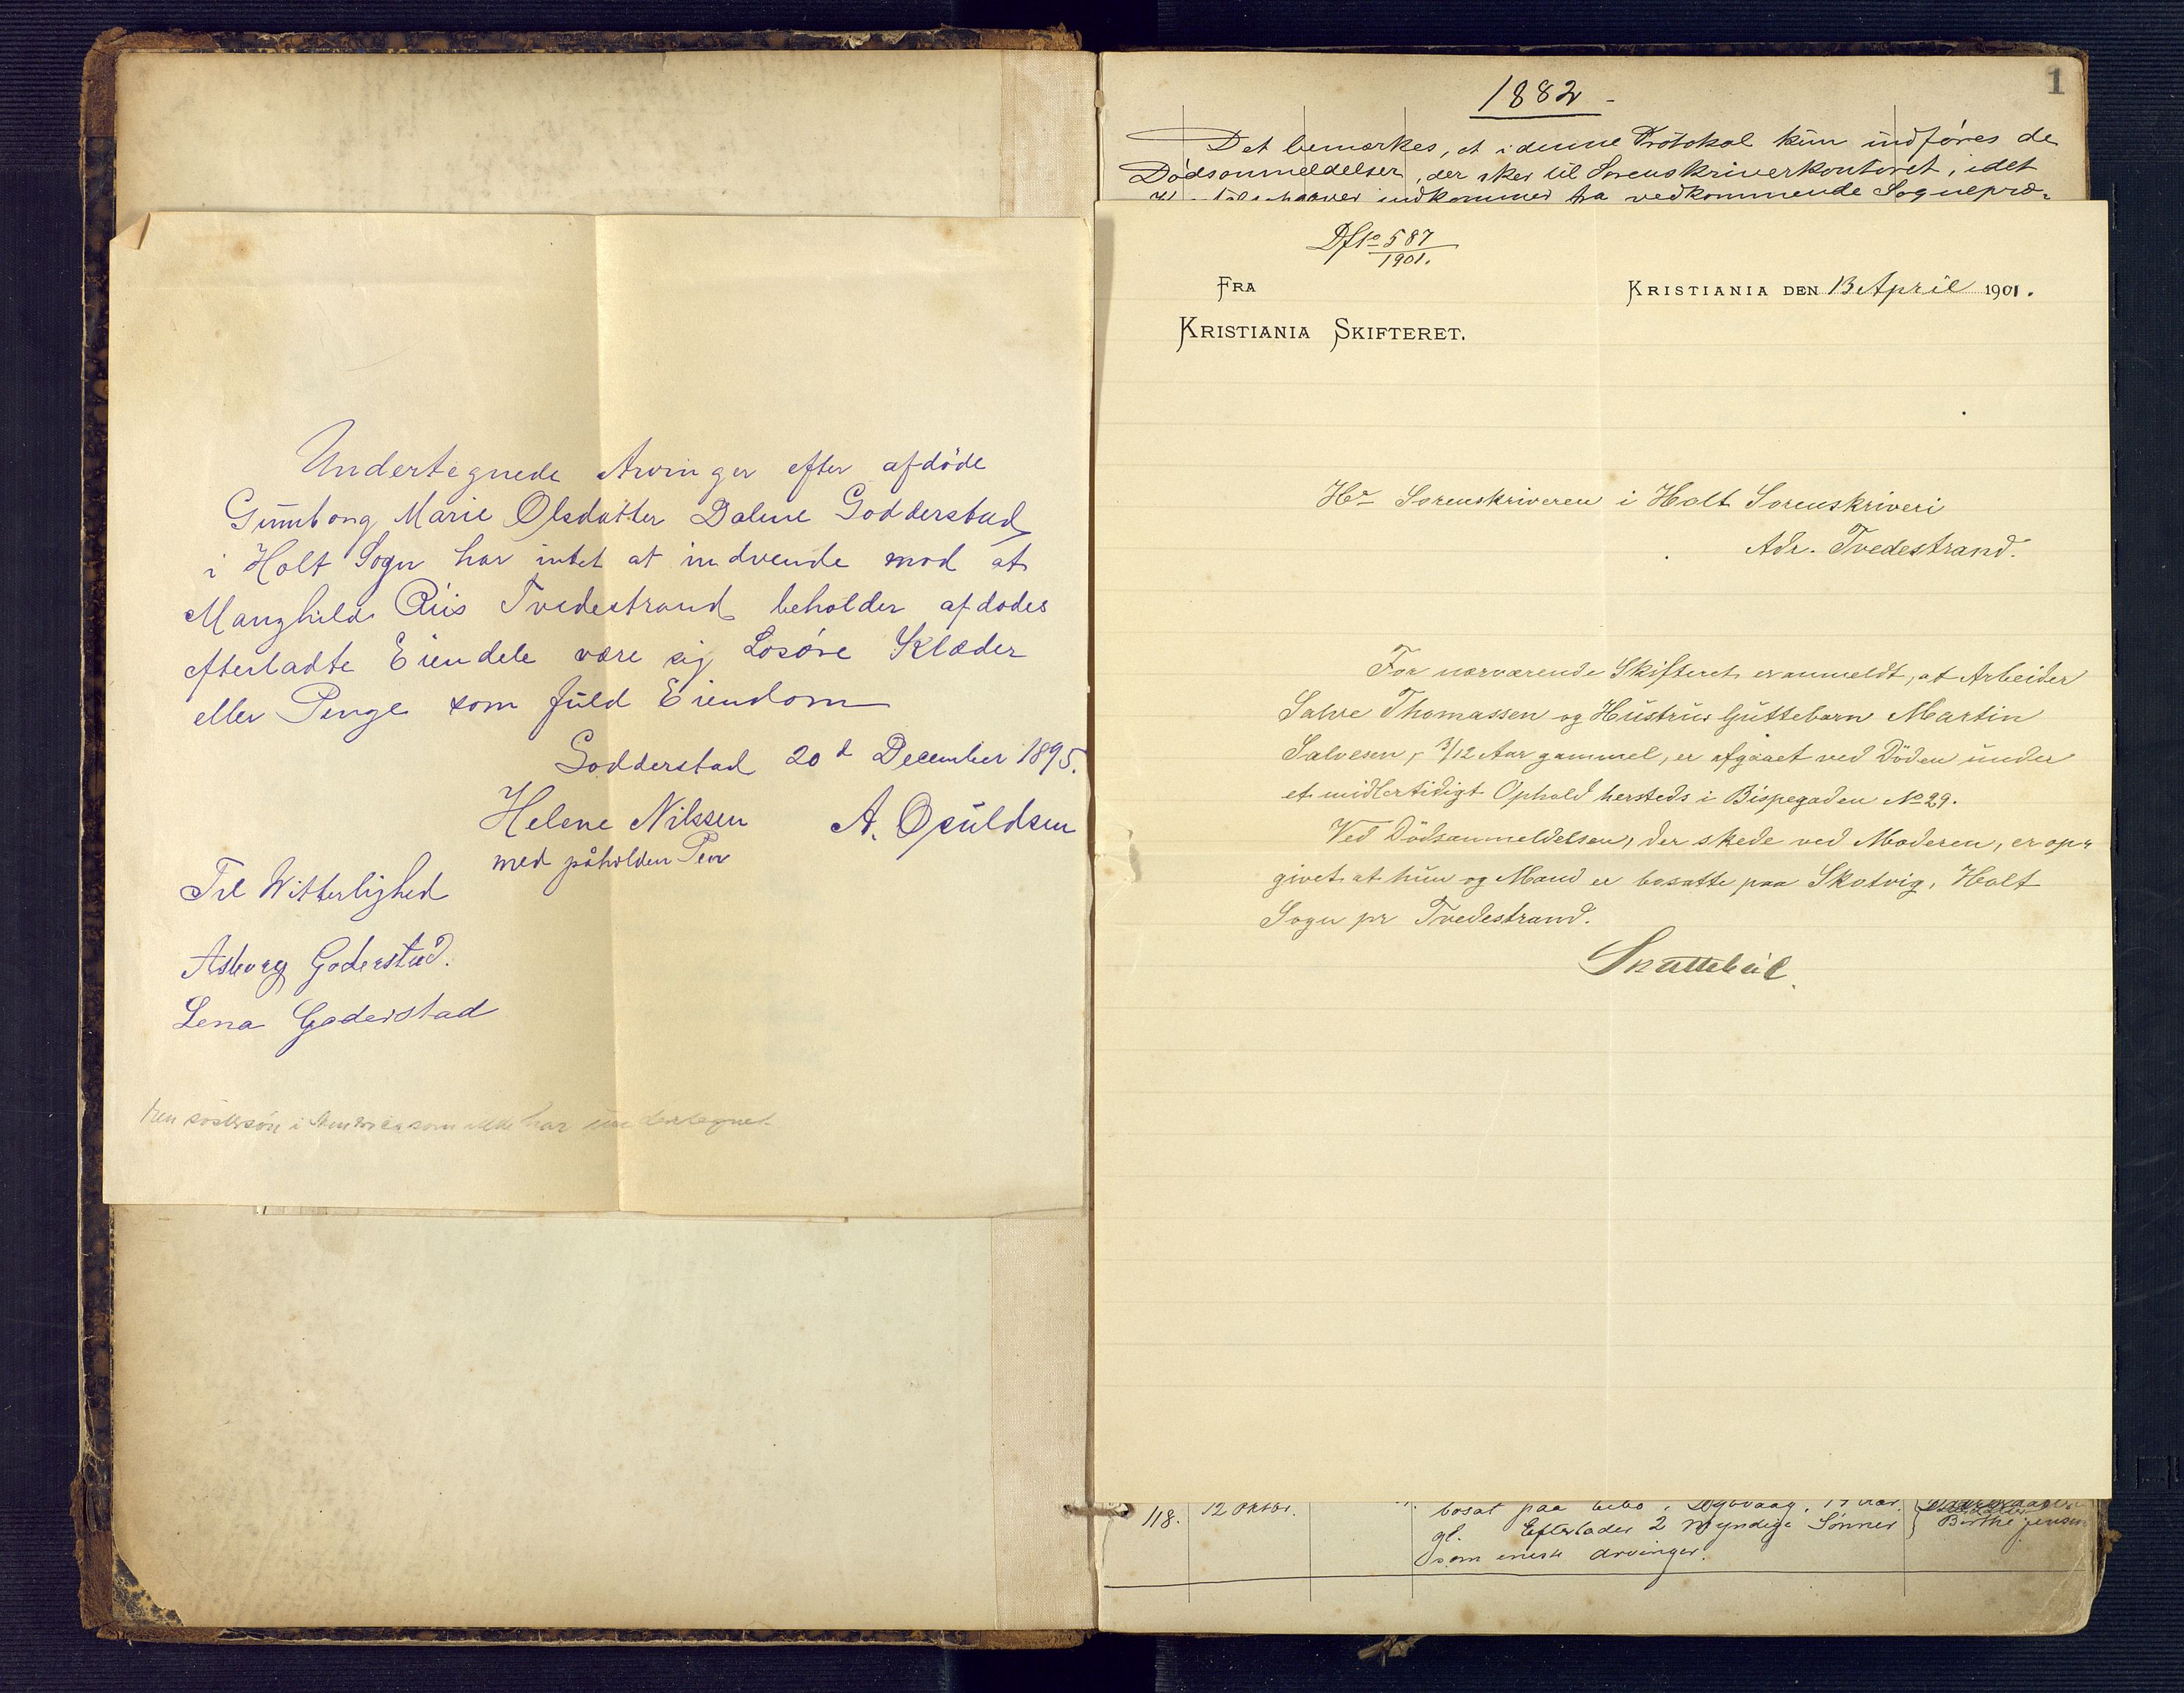 Undertegnede Arvinger efter afdöde
Gunnborg Marie Olsdatter Dalene Godderstad
i Holt Sogn har intet at indvende mod at
Manghild Riis Tvedestrand beholder afdødes
efterladte Eiendele være sig Losöre Klæder
eller Penge som fuld Eiendom
Godderstad 20d December 1895.
Helene Nilssen A. Osuldsen
med påholden Pen
Til Witterlighed
Asborg Goderstad.
Lena Goderstad
søstersön i Amerika som har undertegnet
1
1882
Det bemærkes, at i denne Protokol kun indföres de
Dödsanmeldelser, der sker til Sorenskriverkontoret, idet
indkommer fra vedkommende Sognepræ-
Df No 587
1901.
FRA
KRISTIANIA DEN 13 April 1901.
KRISTIANIA SKIFTERET.
Hr Sorenskriveren i Holt Sorenskriveri
Adr. Tvedestrand.
For nærværende Skifteret er anmeldt, at Arbeider
Salve Thomassen og Hustrus Guttebarn Martin
Salvesen, 3/12 Aar gammel, er afgaaet ved Döden under
et midlertidigt Ophold hersteds i Bispegaden No 29.
Ved Dödsanmeldelsen, der skede ved Moderen, er op-
givet at hun og Mand er bosatte paa Skotvig, Holt
Sogn pr Tvedestrand.
118. 12 Oktbr. bosat paa Aar
gl. Efterlader 2 myndige Sönner Berthe Jensen
som eneste Arvinger.